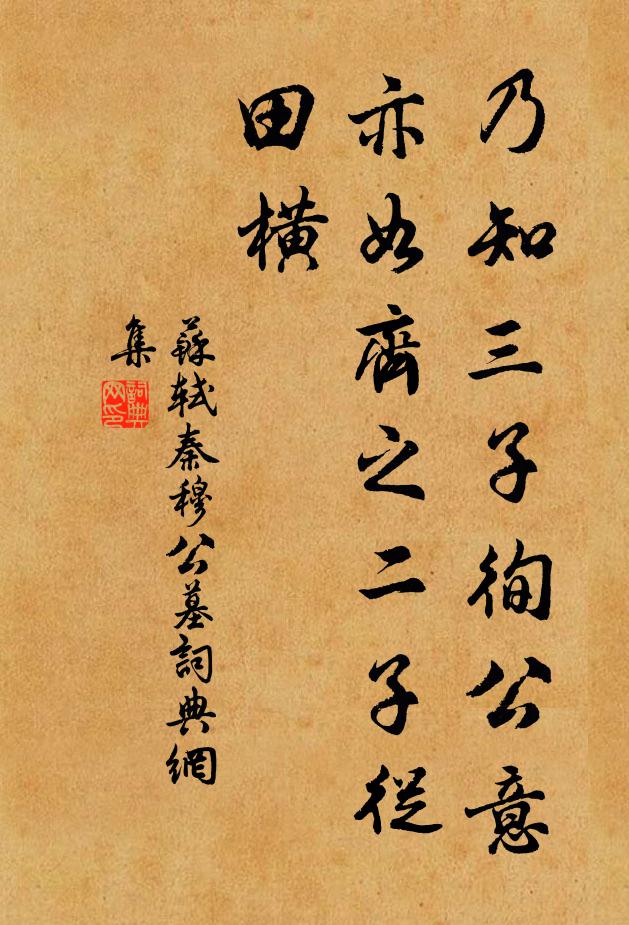 乃知三子徇公意
亦如齊之二子從
田橫
蘇軾秦穆公墓詞典網
集
詞典
网印